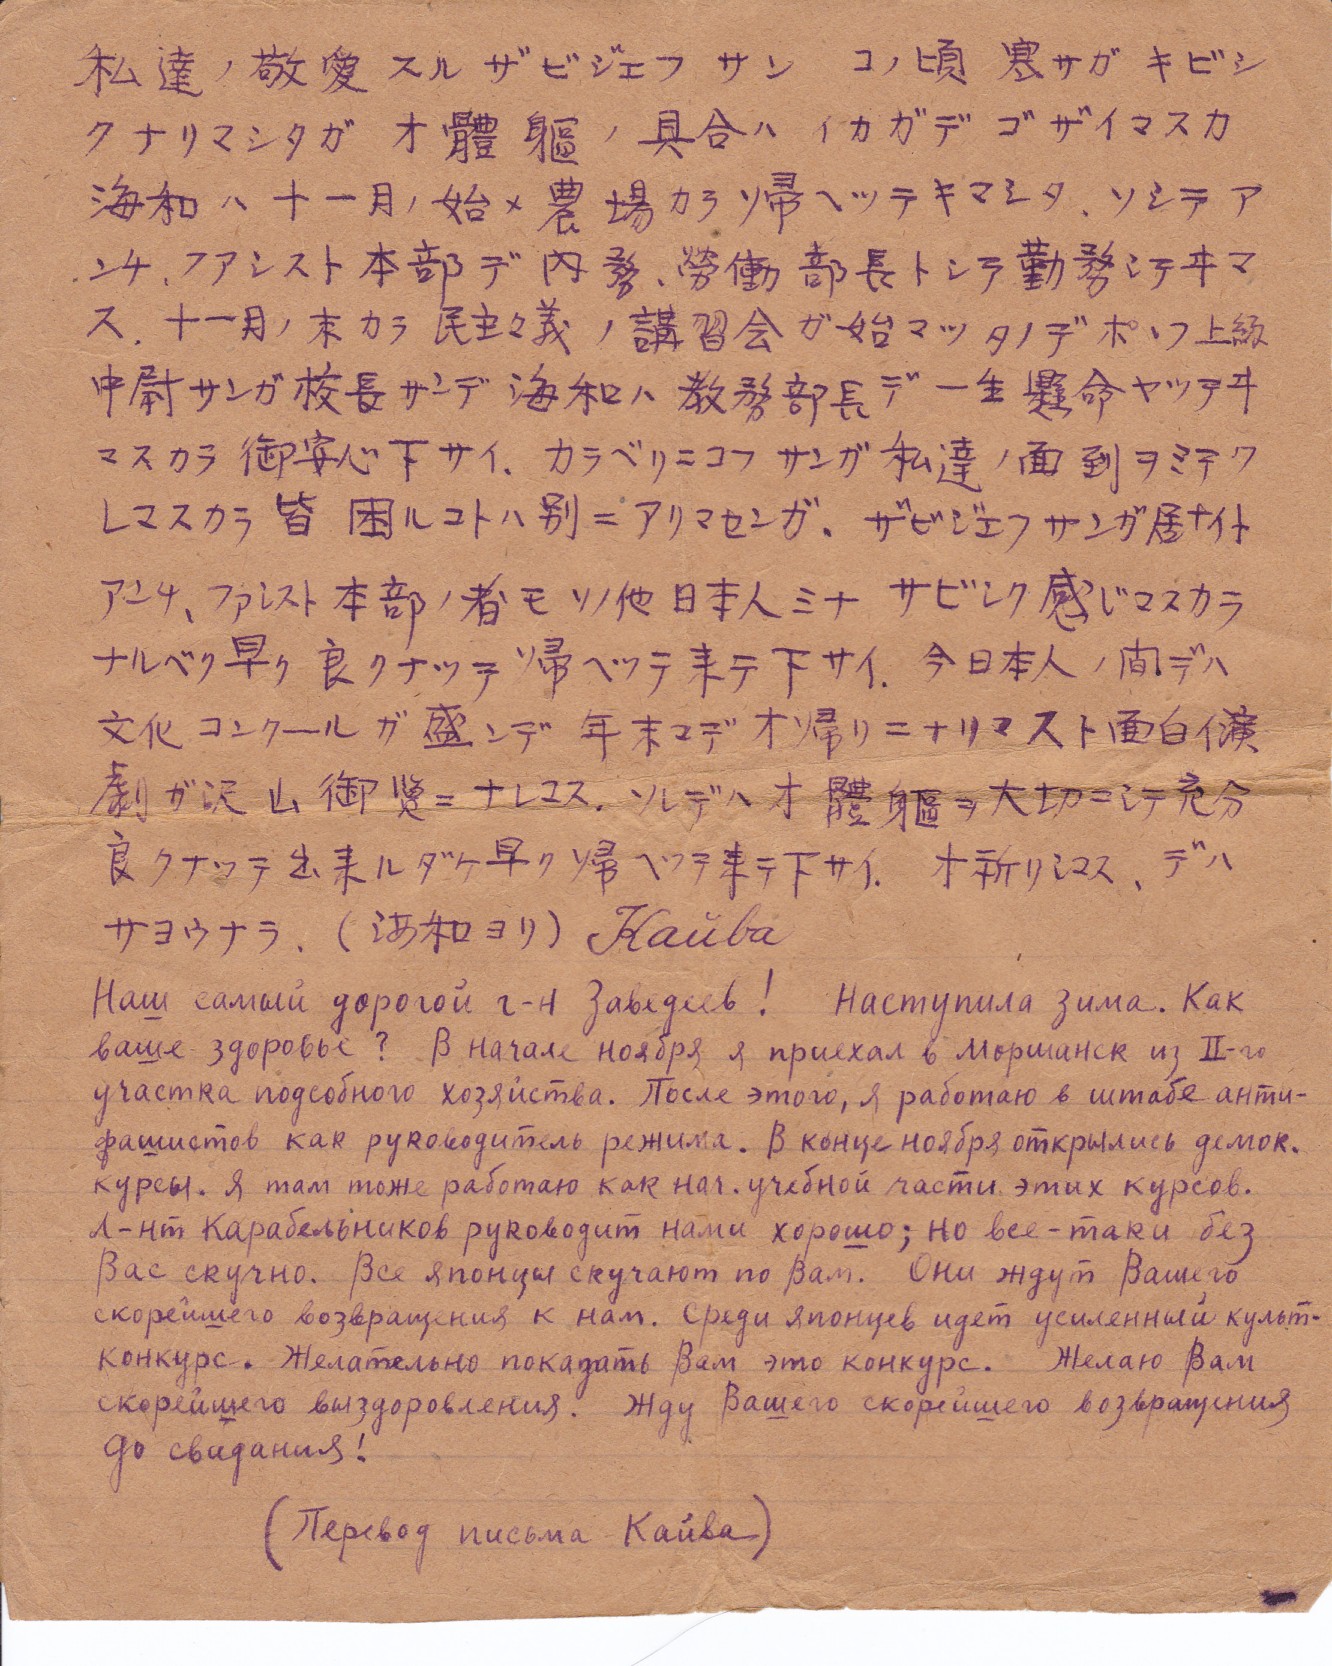 私達ノ敬愛スルザビジエフサン コノ頃寒サガキビシ
クナリマシタガ オ體軀ノ具合ハイカガデゴザイマスカ
海和ハ十一月ノ始メ農場カラ帰ヘッテキマシタ、ソシテア
ンチ、フアシスト本部デ内務、勞働部長トシテ勤務シテヰマ
ス. 十一月ノ末カラ民主々義ノ講習会ガ始マツタノデポポフ上級
中尉サンガ校長サンデ海和ハ教務部長デ一生懸命ヤツテヰ
マスカラ御安心下サイ. カラベリニコフサンガ私達ノ面到ヲミテク
レマスカラ皆困ルコトハ別ニアリマセンガ. ザビジエフサンガ居ナイト
アンチ、ファシスト本部ノ者モソノ他日本人ミナサビシク感じマスカラ
ナルベク早ク良クナッテ帰ヘッテ来テ下サイ. 今日本人ノ間デハ
文化コンクールガ盛ンデ年末マデオ帰リニナリマスト面白イ演
劇ガ沢山御覧ニナレマス. ソレデハオ體軀ヲ大切ニシテ充分
良クナッテ出来ルダケ早ク帰ヘッテ来テ下サイ. オ祈リシマス、デハ
サヨウナラ.(海和ヨリ) Кайва
Наш самый дорогой г-н Заведеев! Наступила зима. Как
ваше здоровье? В начале ноября я приехал в Моршанск из II-го
участка подсобного хозяйства. После этого, я работаю в штабе анти-
фашистов как руководитель режима. В конце ноября открылись демок.
курсы. Я там тоже работаю как нач. учебной части этих курсов.
Л-нт Карабельников руководит нами хорошо; но все-таки без
Вас скучно. Все японцы скучают по Вам. Они ждут Вашего
скорейшего возвращения к нам. Среди японцев идет усиленный культ-
конкурс. Желательно показать Вам это конкурс. Желаю Вам
скорейшего выздоровления. Жду Вашего скорейшего возвращения
До свидания!
(Перевод письма Кайва)